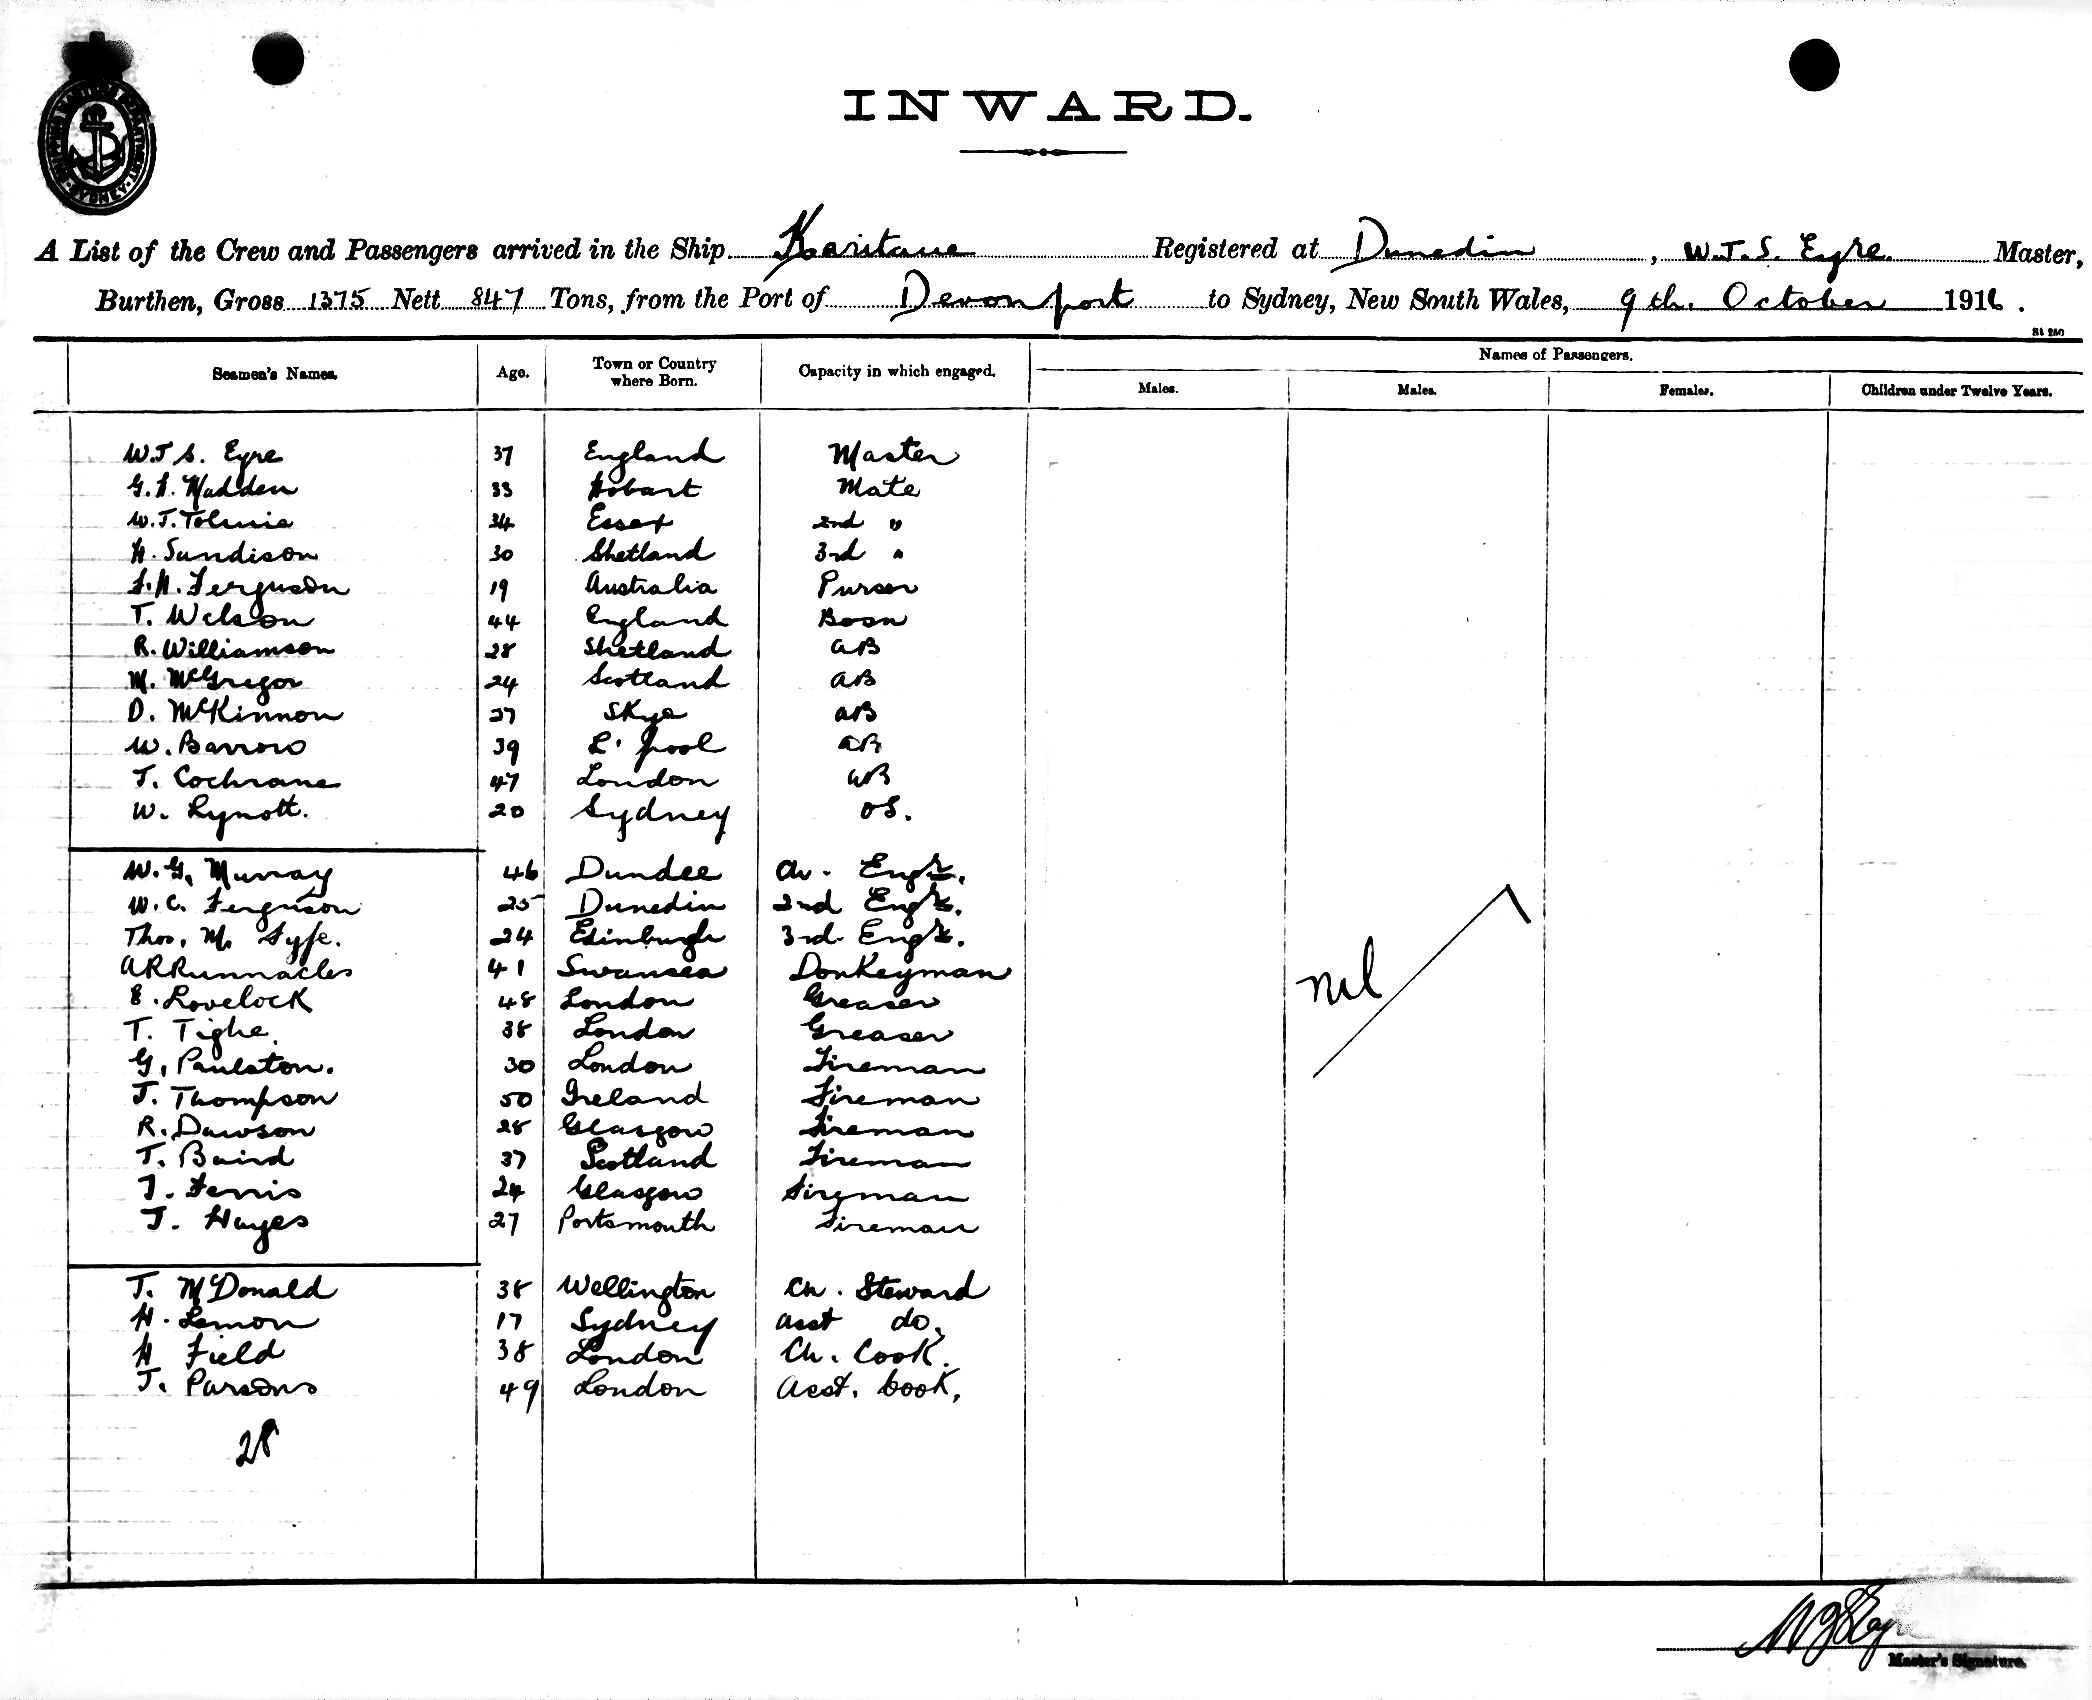 SHIPPING MASTERS DEPARTMENT SYDNEY
INWARD.
A List of the Crew and Passengers arrived in the Ship Karitane Registered at Dunedin, W.J.S. Eyre. Master,
Burthen, Gross 1375 Nett 847 Tons, from the Port of Devonport to Sydney, New South Wales, 9th. October 1916.
St 250
Seamen's Names. Age. Town or Country where Born. Capacity in which engaged. Names of Passengers.
Males. Males. Females. Children under Twelve Years.
W.J S. Eyre 37 England Master
G. Madden 33 Hobart Mate
W.J. Tolmie 34 Essex 2nd "
H. Sandison 30 Shetland 3rd "
F.H. Ferguson 19 Australia Purser
T. Welson 44 England Bosn
R. Williamson 28 Shetland AB
M. McGregor 24 Scotland AB
D. McKinnon 27 Skye AB
W. Barrow 39 L'pool AB
J. Cochrane 47 London AB
W. Lynott. 20 Sydney OS.
W. G. Murray 46 Dundee Ch. Engr.
W. C. Ferguson 25 Dunedin 2nd Engr.
Thos. M. Fyfe. 24 Edinburgh 3rd Engr.
A R Runnacles 41 Swansea Donkeyman
E. Lovelock 48 London Greaser
T. Tighe. 38 London Greaser
nil
G. Paulston. 30 London Fireman
J. Thompson 50 Ireland Fireman
R. Dawson 28 Glasgow Fireman
T. Baird 37 Scotland Fireman
J. Ferris 24 Glasgow Fireman
J. Hayes 27 Portsmouth Fireman
T. McDonald 38 Wellington Ch. Steward
H. Lemon 17 Sydney Asst do.
H Field 38 London Ch. Cook.
J. Parsons 49 London Asst. Cook.
28
Master's Signature.